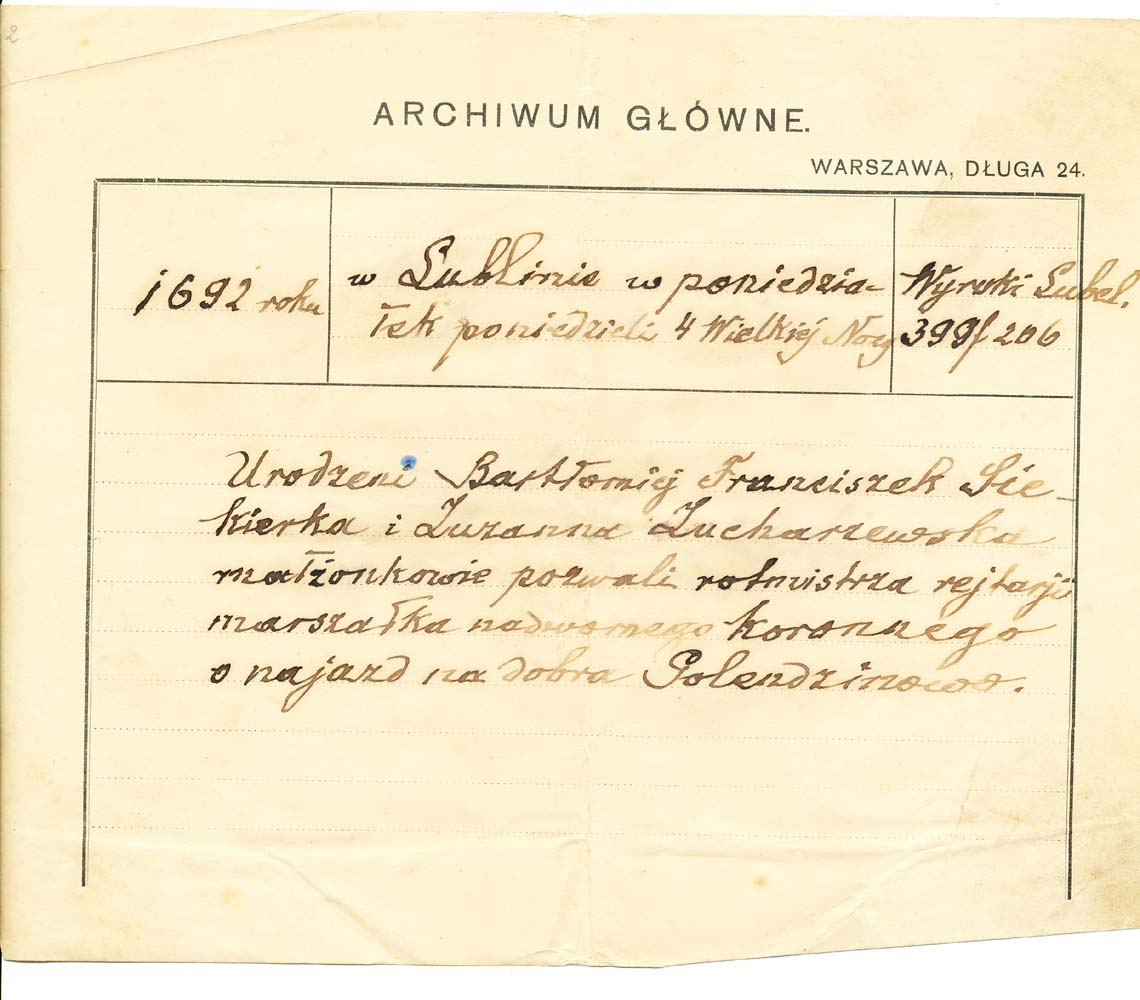 2
ARCHIWUM GŁÓWNE.
WARSZAWA, DŁUGA 24.
1692 roku
w Lublinie w poniedzia-
łek poniedzieli 4 Wielkiej Nocy
Wyroki Lubel.
399 f 206
Urodzeni Bartłomiej Franciszek Sie-
kierka i Zuzanna Zucharzewska
małżonkowie pozwali rotmistrza rejtarji
marszałka nadwornego koronnego
o najazd na dobra Golendzinowo.